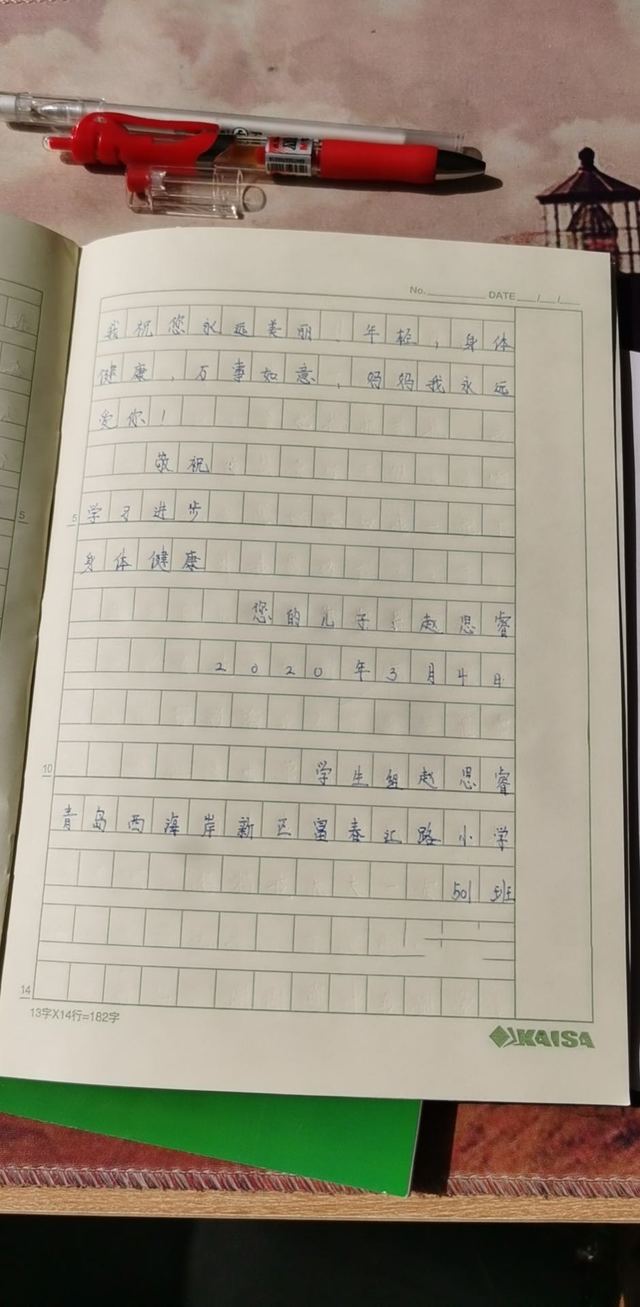 No. DATE / /
我祝您永远美丽、年轻，身体
健康，万事如意，妈妈我永远
爱你！
敬祝：
5 学习进步
身体健康
您的儿子：赵思睿
2020年3月4日
10 学生组赵思睿
青岛西海岸新区富春江路小学
501班
14
13字X14行=182字
KAISA
5